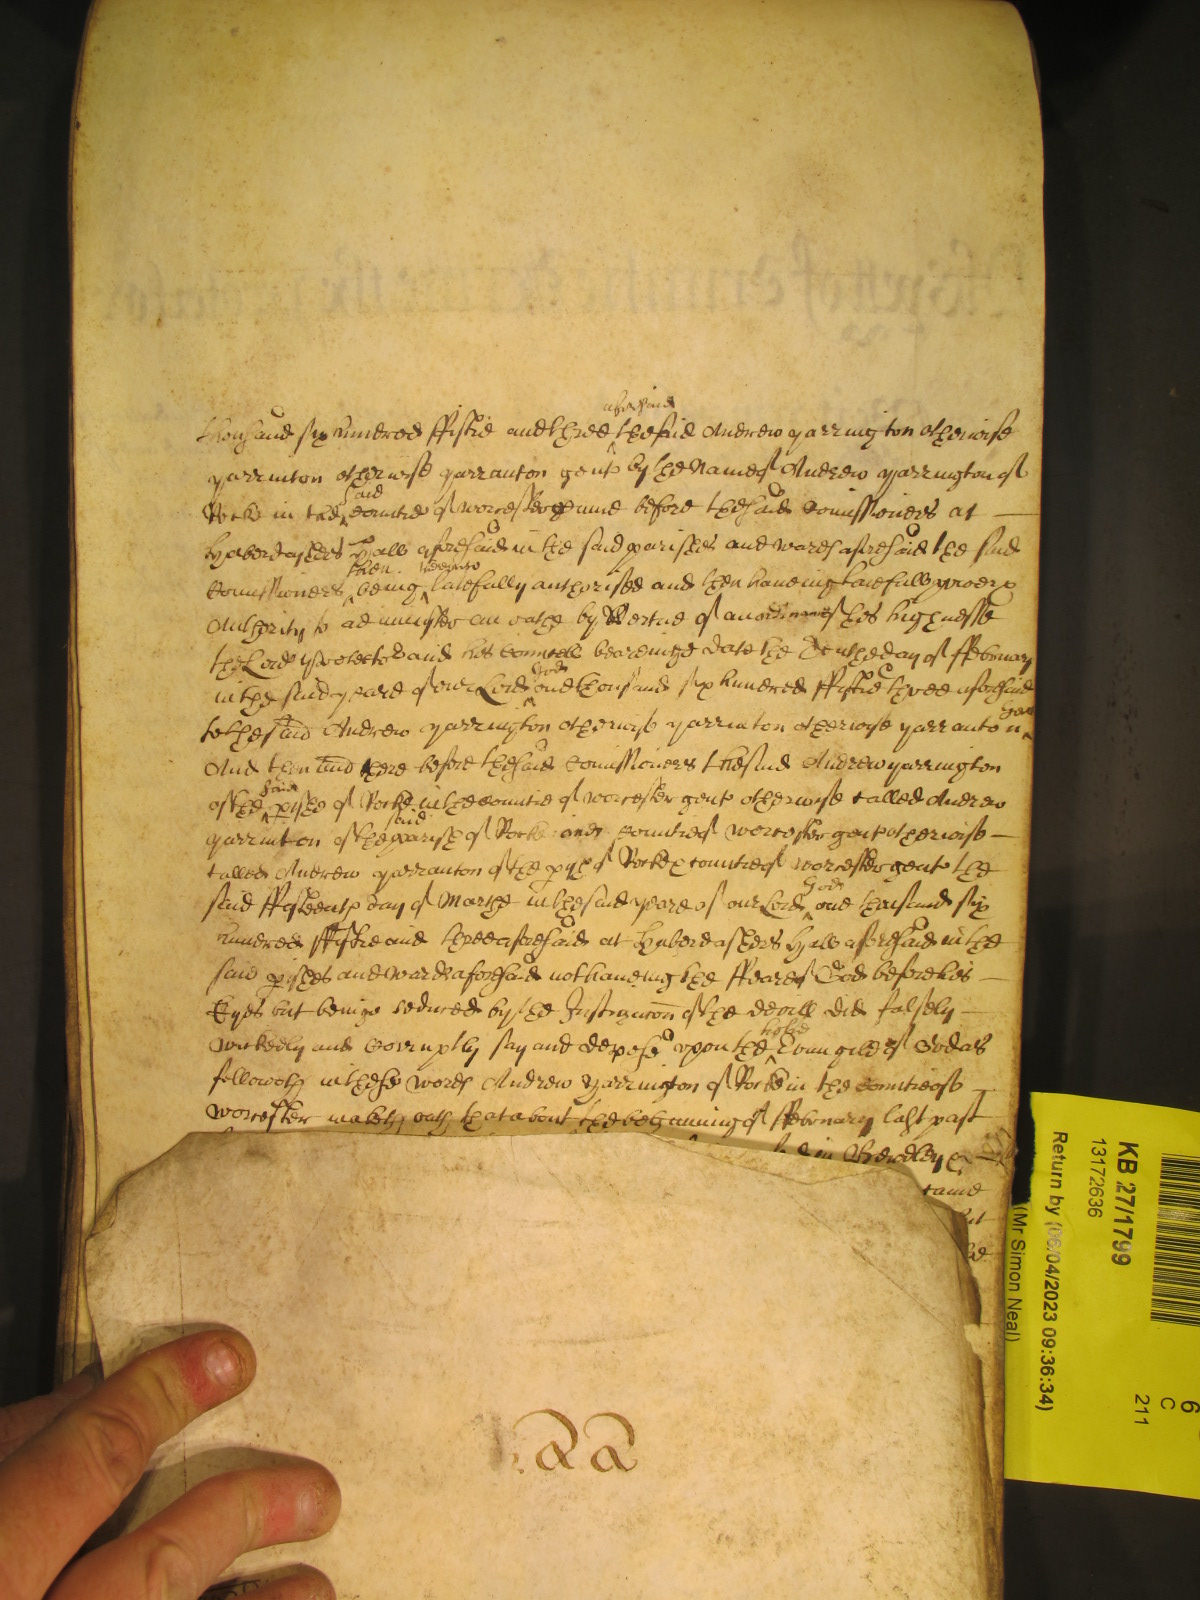 thousand six hundred ffiftie and three aforesaid the said Andrew yarrington otherwise
yarrinton otherwise yarranton gent by the Name of Andrew yarrington of
Rocke in the said Countie of worcester gent came before the said Comissioners at
Haberdashers Hall aforesaid in the said parishes and ward aforesaid the said
Comissioners then being thereunto lawfully authorised and then haveing lawfull power &
Authority to administer an oathe by Vertue of an ordinance of his highnesse
the Lord Protector and his Councell beareinge date the Tenth day of ffebruary
in the said yeare of our Lord God one thousand six hundred ffiftie three aforesaid
to the said Andrew yarrington otherwise yarrinton otherwise yarranton gent
And then and there before the said Comissioners the said Andrew yarrington
of the said pishe of Rocke in the Countie of worcester gent otherwise called Andrew
yarrinton of the said parish of Rocke and Countie of worcester gent otherwise
called Andrew yarranton of the pish of Rocke & countie of worcester gent the
said ffifteenth day of Marche in the said yeare of our Lord God one thousand six
hundred ffiftie and three aforesaid at Haberdashers Hall aforesaid in the
said pishes and ward aforesaid not haveing the ffeare of God before his
Eyes but beinge seduced by the Instigacon of the devill did falsely
wickedly and Corruptly say and depose upon the holie Evangelist of God as
followeth in these words Andrew yarrington of Rocke in the Countie of
worcester maketh oath that about the beginning of ffebruary last past
in Bewdley &
aa
KB 27/1799
13172636
Return by (06/04/2023 09:36:34)
(Mr Simon Neal)
6
C
211